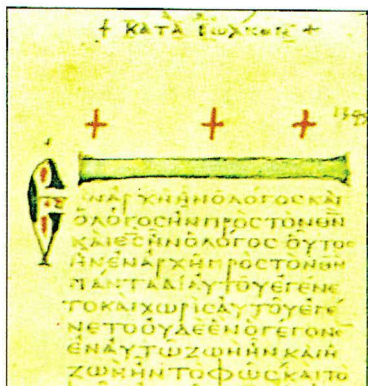 ΚΑΤΑ
ΕΝΑΡΧΗΗΝΟΛΟΓΟϹΚΑΙ
ΟΛΟΓΟϹΗΝΠΡΟϹΤΟΝΘΝ
ΚΑΙΘϹΗΝΟΛΟΓΟϹ ΟΥΤΟϹ
ΗΝΕΝΑΡΧΗΠΡΟϹΤΟΝΘΝ
ΠΑΝΤΑΔΙΑΥΤΟΥΕΓΕΝΕ
ΤΟΚΑΙΧΩΡΙϹΑΥΤΟΥΕΓΕ
ΝΕΤΟΟΥΔΕΕΝΟΓΕΓΟΝΕ
ΕΝΑΥΤΩΖΩΗΗΝΚΑΙΗ
ΖΩΗΗΝΤΟΦΩϹΚΑΙΤΟ